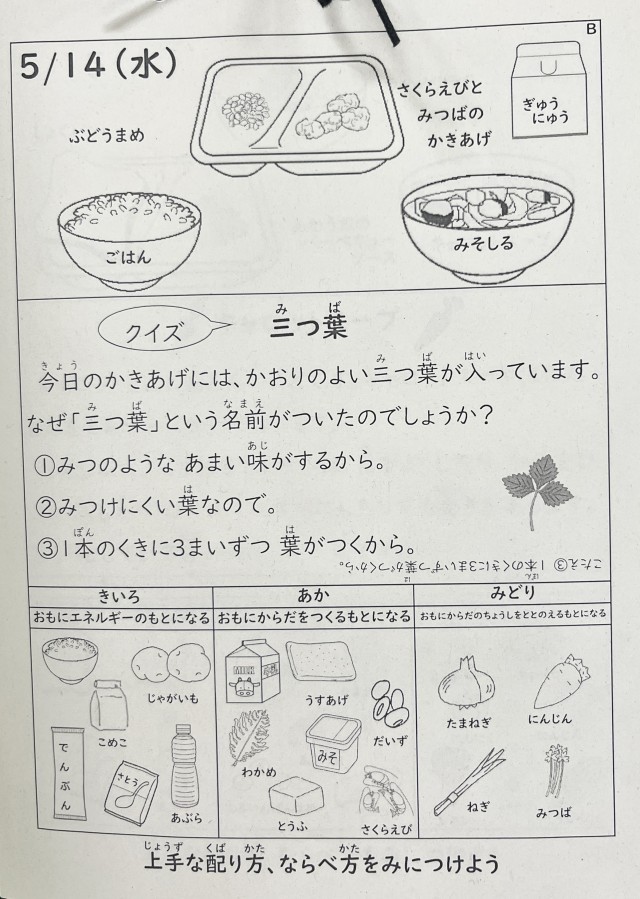 B
5/14(水)
ぶどうまめ
さくらえびと
みつばの
かきあげ
ぎゅう
にゅう
ごはん
みそしる
クイズ
み ば
三つ葉
きょう み ば はい
今日のかきあげには、かおりのよい三つ葉が入っています。
み ば なまえ
なぜ「三つ葉」という名前がついたのでしょうか?
あじ
①みつのような あまい味がするから。
は
②みつけにくい葉なので。
ぽん は
③1本のくきに3まいずつ 葉がつくから。
ぽん は
こたえ③ 1本のくきに3まいずつ葉がつくから。
きいろ
あか
みどり
おもにエネルギーのもとになる
おもにからだをつくるもとになる
おもにからだのちょうしをととのえるもとになる
じゃがいも
こめこ
でんぷん
さとう
あぶら
MILK
うすあげ
だいず
わかめ
みそ
とうふ
さくらえび
たまねぎ
にんじん
ねぎ
みつば
じょうず くば かた かた
上手な配り方、ならべ方をみにつけよう